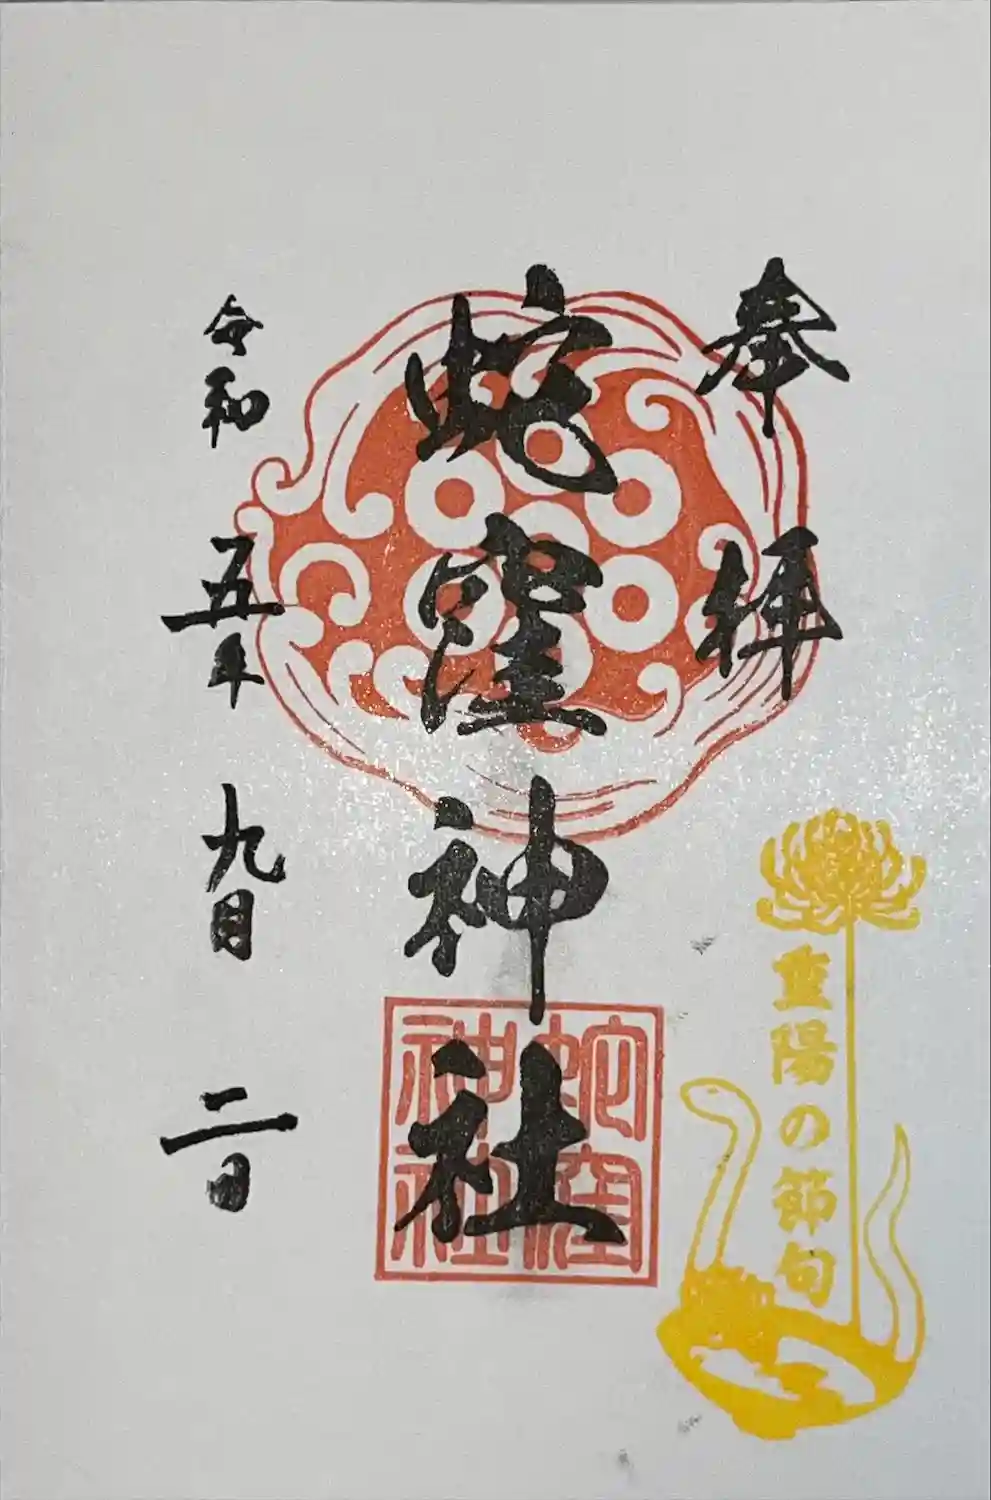 奉拝
蛇窪神社
令和五年九月二日
重陽の節句
蛇窪
神社